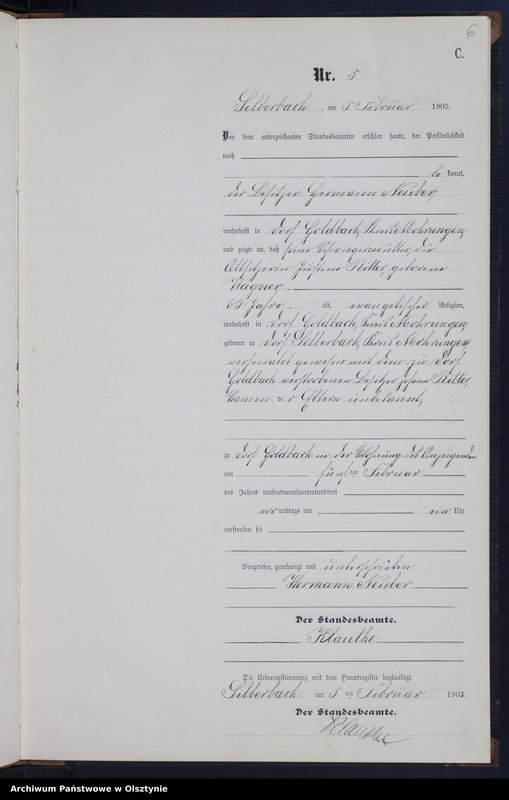 6
C.
Nr. 5
Silberbach, am 5 Februar 1903.
Vor dem unterzeichneten Standesbeamten erschien heute, der Persönlichkeit
nach
be kannt,
der Besitzer Hermann Neuber,
wohnhaft in Dorf Goldbach, Kreis Mohrungen,
und zeigte an, daß seine Schwiegermutter, die
Altsitzerin Justine Ritter, geborene
Wagner,
Jahre alt, evangelischer Religion,
wohnhaft in Dorf Goldbach, Kreis Mohrungen,
geboren zu Dorf Silberbach, Kreis Mohrungen
verheiratet gewesen mit dem zu Dorf
Goldbach verstorbenen Besitzer Johann Ritter,
Namen der Eltern unbekannt,
zu Dorf Goldbach in der Wohnung des Anzeigenden
am fünften Februar
des Jahres tausendneunhundertunddrei
vormittags um ein Uhr
verstorben sei
Vorgelesen, genehmigt und unterschrieben
Hermann Neuber
Der Standesbeamte.
Klauthe
Die Uebereinstimmung mit dem Hauptregister beglaubigt.
Silberbach am 5 ten Februar 1903.
Der Standesbeamte.
Klauthe
Archiwum Państwowe w Olsztynie